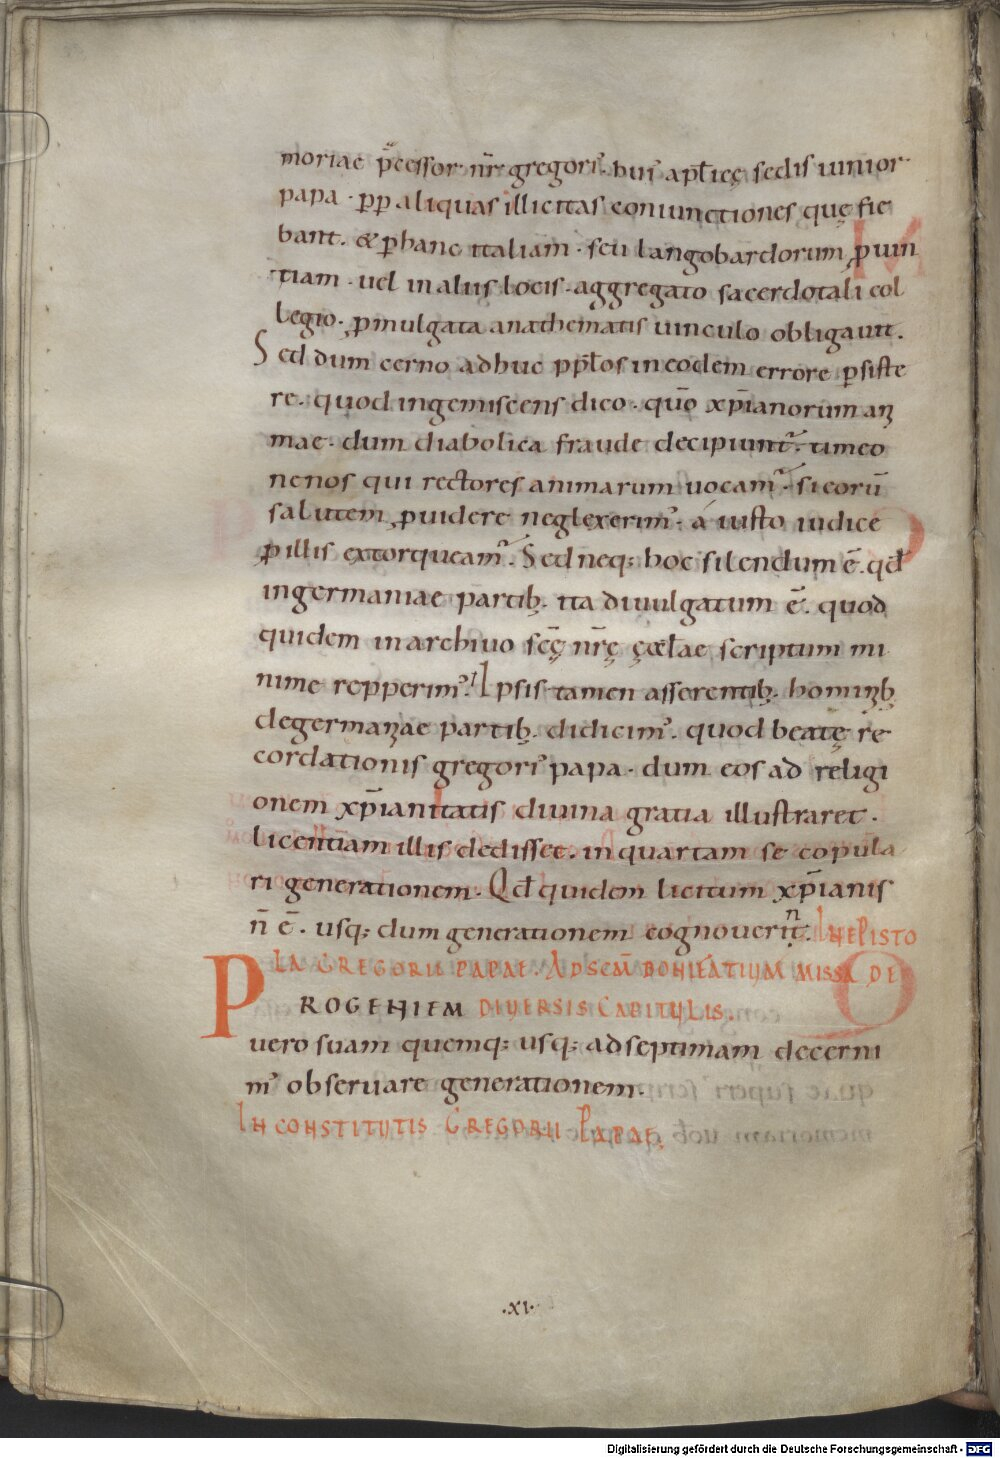 moriae p̄cessor· nr̄ gregori᾽· hui᾽ apl̄icę sedis iunior·
papa · p̱p̱ aliquas illicitas coniunctiones quę fie
bant. & p̱ hanc italiam · seu langobardorum ꝓuin
tiam · uel in aliis locis · aggregato sacerdotali col
legio· ꝓmulgata anathematis uinculo obligauit.
Sed dum cerno adhuc ppl̄os in eodem errore p̱siste
re· quod ingemiscens dico· quō xp̄ianorum ani
mae· dum diabolica fraude decipiunt᾽· timeo
ne nos qui rectores animarum uocam᾽· si eorū
salutem ꝓuidere neglexerim᾽· a iusto iudice
p̱ illis extorqueam᾽. Sed neq; hoc silendum ē. qd̄
in germaniae partib; ita diuulgatum ē. quod
quidem in archiuo scę̄ nr̄ę ęccl̄ae scriptum mi
nime repperim᾽. Ipsis tamen asserentib; hominib;
de germaniae partib; didicim᾽. quod beatę re
cordationis gregori᾽ papa· dum eos ad religi
onem xp̄ianitatis diuina gratia illustraret·
licentiam illis dedisset. in quartam se copula
ri generationem. Qd̄ quidem licitum xp̄ianis
n̄ ē. usq; dum generationem cognouerint. IN EPISTO
LA GREGORII PAPAE. AD SCM̄ BONIFATIUM MISSA DE
PROGENIEM DIUERSIS CAPITULIS.
uero suam quemq; usq; ad septimam decerni
m᾽ obseruare generationem.
IN CONSTITUTIS GREGORII PAPAE.
·XI·
Digitalisierung gefördert durch die Deutsche Forschungsgemeinschaft - DFG